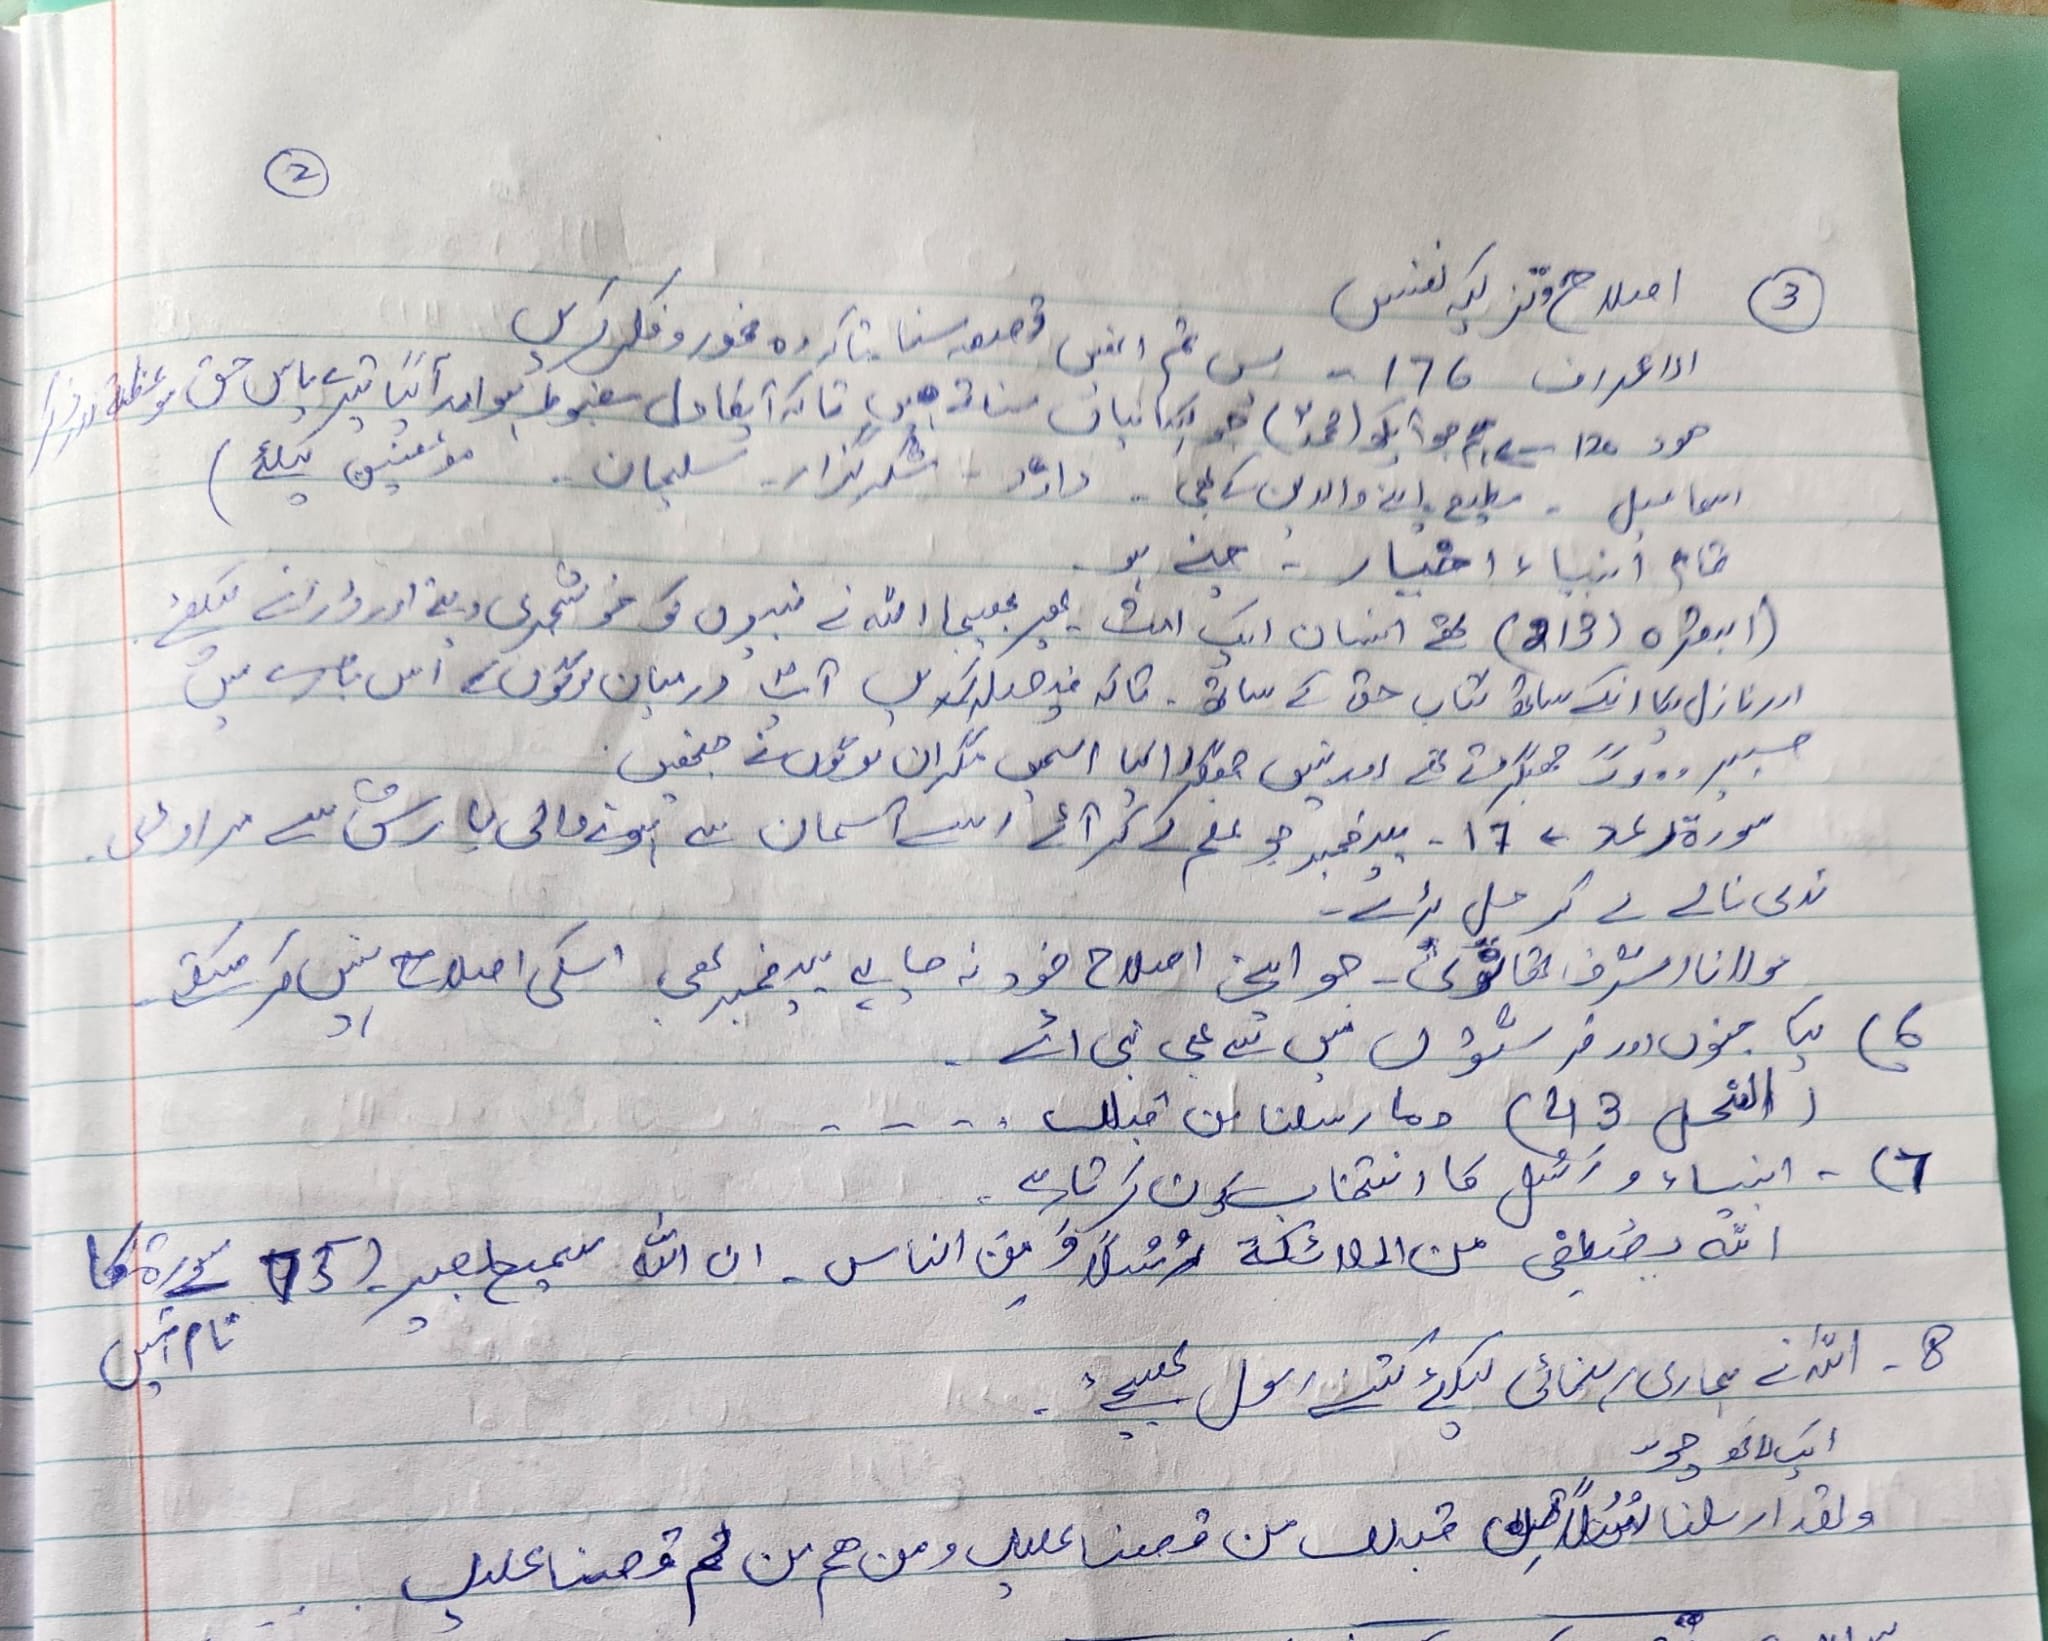 ②
③ اصلاح وتزکیہ نفس
الاعراف 176 - بس تم انھیں قصہ سنا تاکہ وہ غور و فکر کریں
ھود 120 سے ہم جو آپکو (محمدؐ) جو کہانیاں سناتے ہیں تاکہ آپکا دل مضبوط ہو اور آئیگا تیرے پاس حق موعظۃ اور ذکر
اسماعیل - مطیع اپنے والدین کے بھی - داؤد - شکر گزار - سلیمان - مؤمنین کیلئے)
تمام انبیاء اخیار - چنے ہو
(البقرہ (213) تھے انسان ایک امت - پھر بھیجا اللہ نے نبیوں کو خوشخبری دینے اور ڈرانے کیلئے.
اور نازل کیا انکے ساتھ کتاب حق کے ساتھ - تاکہ فیصلہ کریں آپؐ درمیان لوگوں کے اس بارے میں
جسپر وہ جھگڑتے تھے اور نہیں جھگڑا کیا اسمیں مگر ان لوگوں نے جنھیں.
سورۃ رعد ← 17 - پیغمبر جو علم لے کر آئے اسے آسمان سے ہونے والی بارش سے مراد لی.
ندی نالے لے کر چل پڑے -
مولانا اشرف تھانویؒ - جو اپنی اصلاح خود نہ چاہے پیغمبر بھی اسکی اصلاح نہیں کر سکتے -
6) کیا جنوں اور فرشتوں میں سے بھی نبی آئے -
(النحل 43) وما رسلنا من قبلک . - - - -
7) - انبیاء و رُسُل کا انتخاب کون کرتا ہے .
اللہ یصطفی من الملائکۃ رُسُلاً وَّ مِن الناس - ان اللہ سمیع بصیر - (75 سورۃ کا
نام نہیں
8 - اللہ نے ہماری رہنمائی کیلئے کتنے رسول بھیجے .
ایک لاکھ چوبیس
ولقد ارسلنا رُسُلاً مِّن قبلک من قصصنا علیک ومن ھم من لم قصصنا علیک . . .